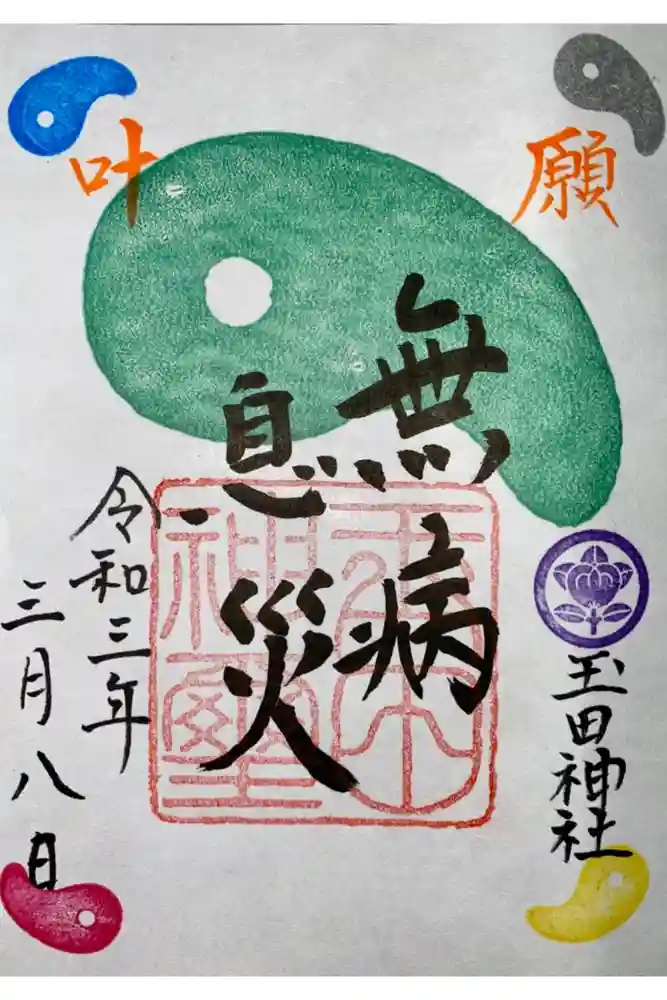 願
叶
玉田神社
無病
息災
令和三年
三月八日